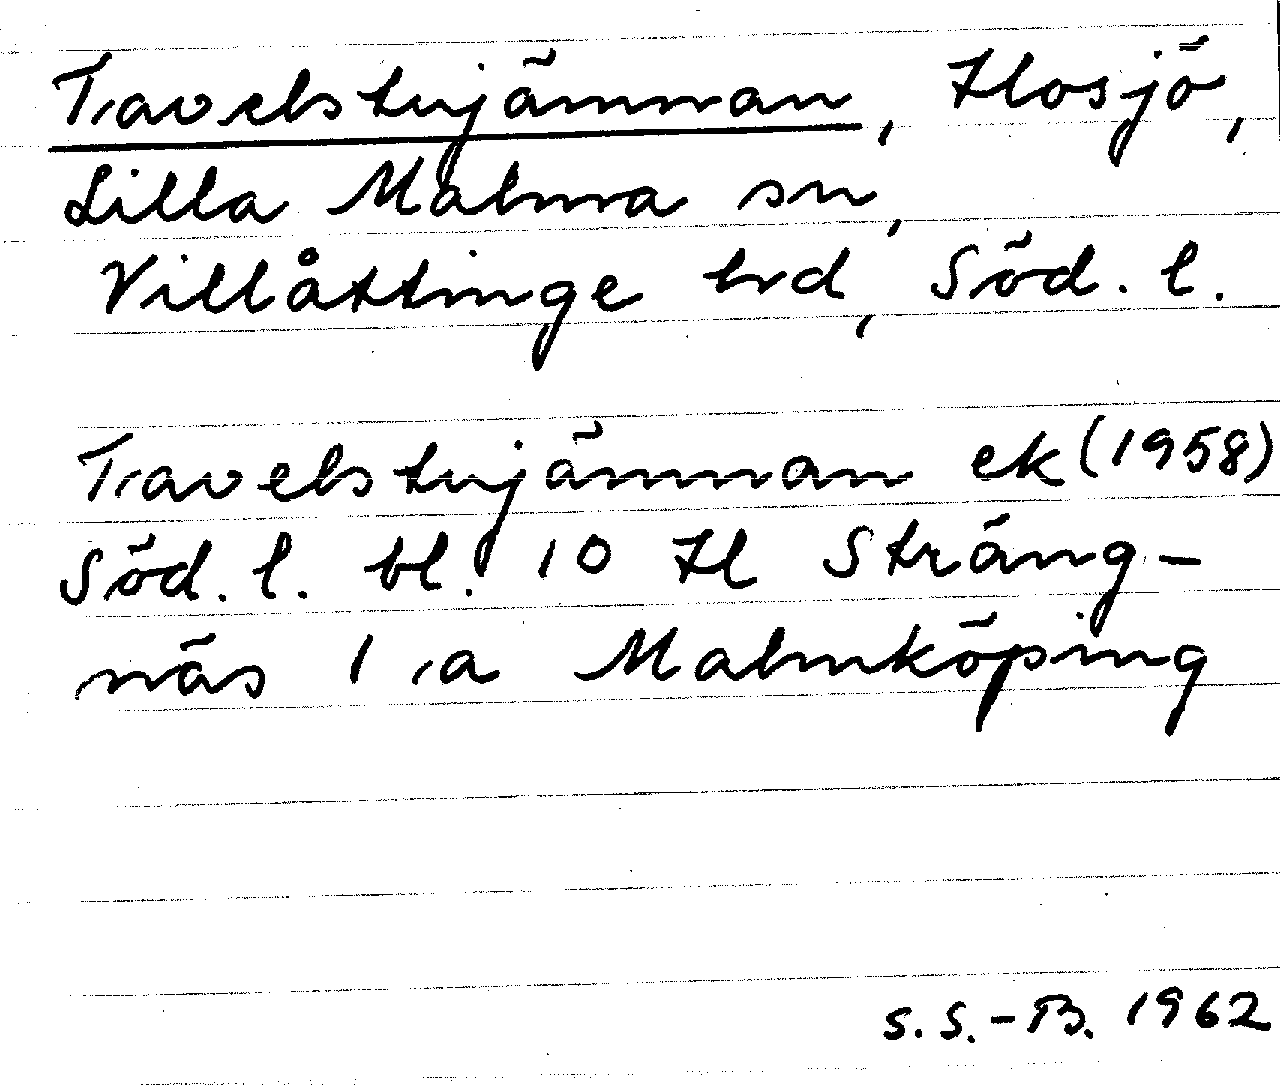 Travelstujärnnan, Hosjö,
Lilla Malma sn,
Villåttinge hd, Söd. l.
Travelstujärnnan ek (1958)
Söd. l. bl. 10 H Sträng-
näs 1 a Malmköping
S. S.-B. 1962